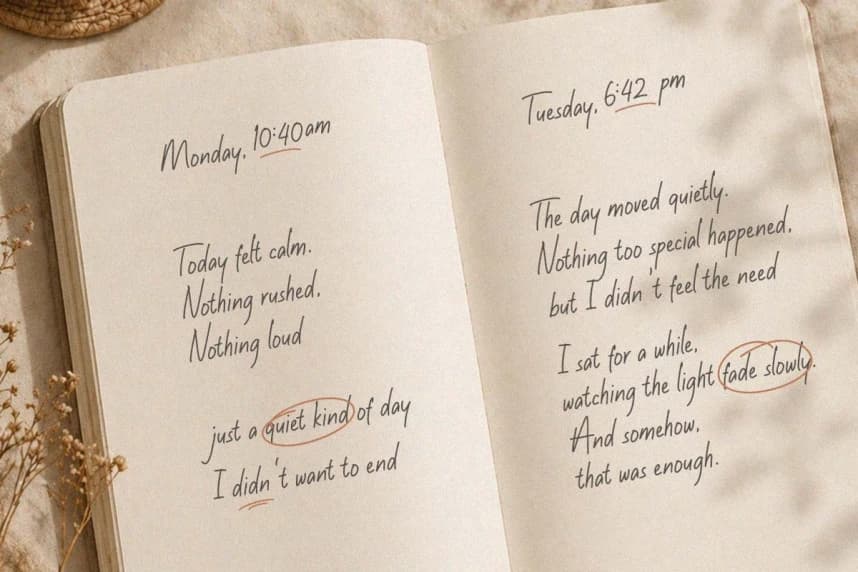 Monday, 10:40 am
Today felt calm.
Nothing rushed,
Nothing loud
just a quiet kind of day
I didn't want to end
Tuesday, 6:42 pm
The day moved quietly.
Nothing too special happened,
but I didn't feel the need
I sat for a while,
watching the light fade slowly.
And somehow,
that was enough.